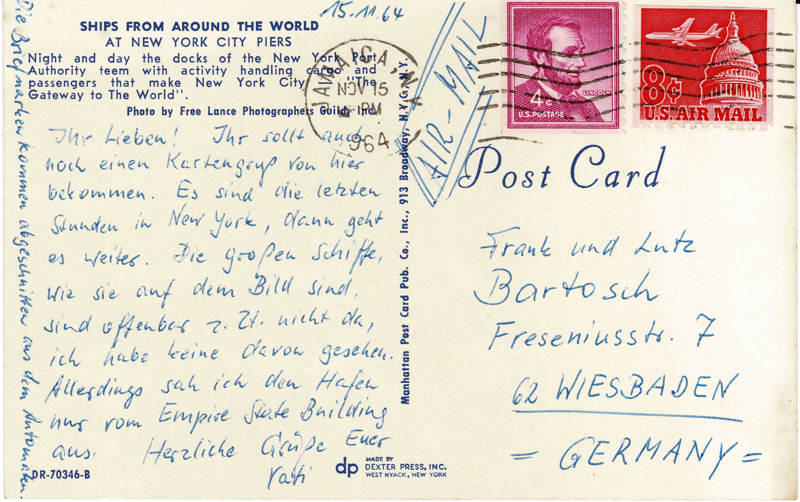 15.11.64
SHIPS FROM AROUND THE WORLD
AT NEW YORK CITY PIERS
Night and day the docks of the New York Port
Authority teem with activity handling cargo and
passengers that make New York City "The
Gateway to The World".
Photo by Free Lance Photographers Guild, Inc.
Ihr Lieben! Ihr sollt auch
noch einen Kartengruß von hier
bekommen. Es sind die letzten
Stunden in New York, dann geht
es weiter. Die großen Schiffe,
wie sie auf dem Bild sind,
sind offenbar z. Zt. nicht da,
ich habe keine davon gesehen.
Allerdings sah ich den Hafen
nur vom Empire State Building
aus. Herzliche Grüße Euer
Vati
Die Briefmarken kommen abgeschnitten aus dem Automaten.
DR-70346-B
dp
MADE BY
DEXTER PRESS, INC.
WEST NYACK, NEW YORK
Manhattan Post Card Pub. Co., Inc., 913 Broadway, N.Y.C., N.Y.
JAMAICA, N.Y.
NOV 15
PM
1964
AIR-MAIL
LINCOLN
4¢
U.S. POSTAGE
8¢
U.S. AIR MAIL
Post Card
Frank und Lutz
Bartosch
Freseniusstr. 7
62 WIESBADEN
= GERMANY =